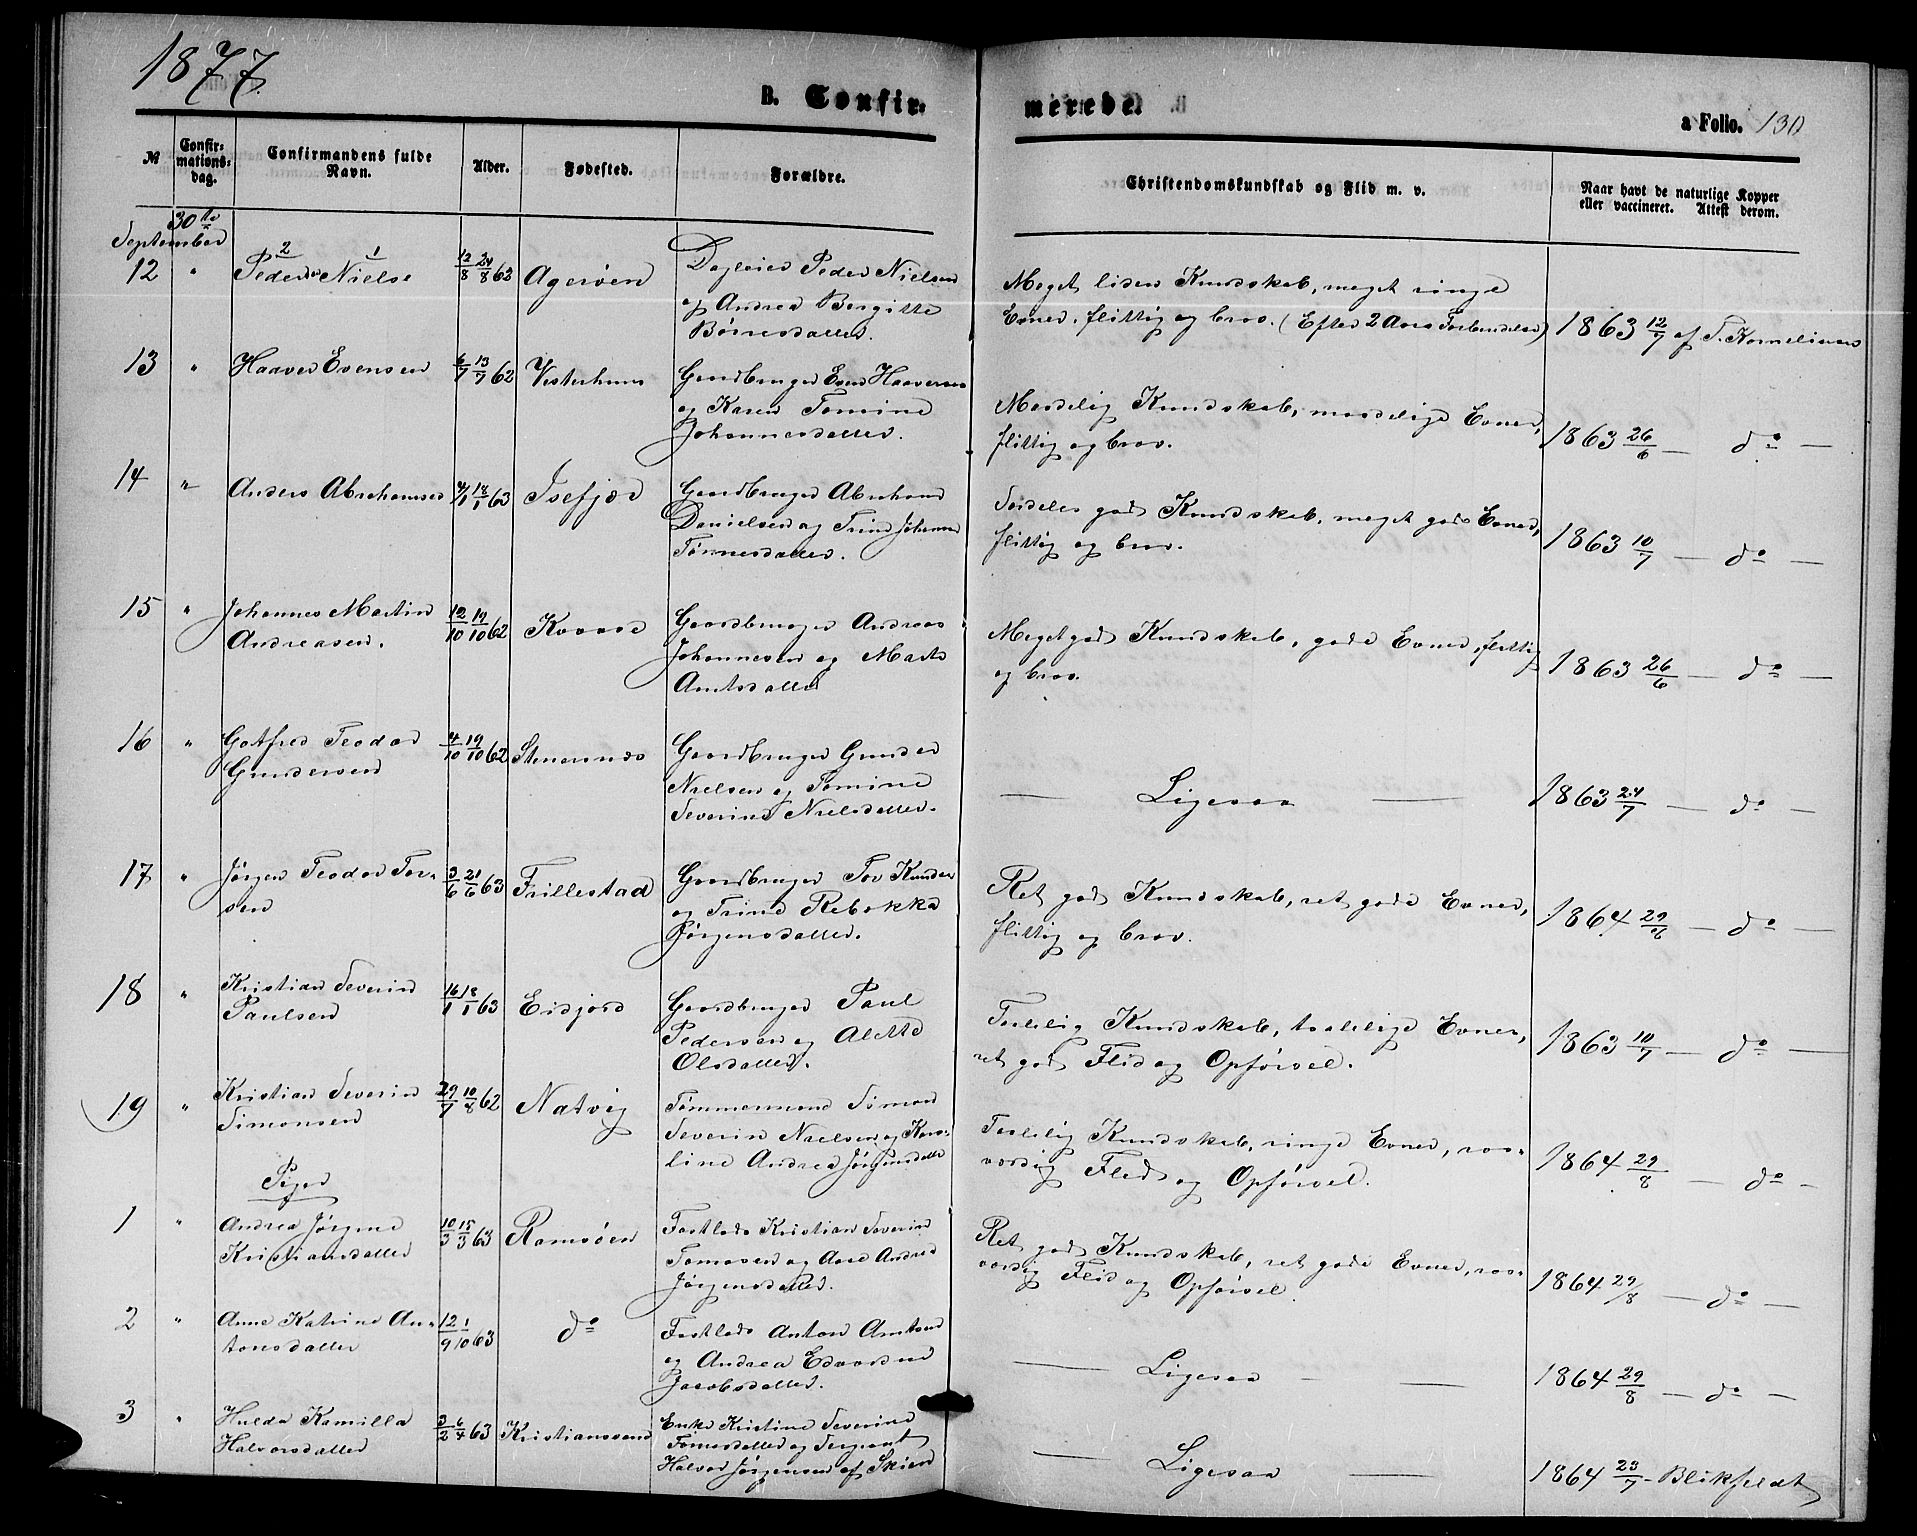 1877.
B. Confir-
merede.
a Folio. 130
№
Confir-
mations-
dag.
Confirmandens fulde
Navn.
Alder.
Fødested.
Forældre.
Christendomskundskab og Flid m. v.
Naar havt de naturlige Kopper
eller vaccineret. Attest derom.
30te
September
12 " Peder Nielse 12/8 24/8 62 Agerøen
Dagleier Peder Nielsen
og Andrea Bergitte
Børresdatter.
Meget liden Kundskab, meget ringe
Evner, flittig og brav. (Efter 2 Aars Forberedelse)
1863 12/7 af T. Kornelius
13 " Haaver Evensen 6/7 13/7 62 Vesterhuus
Gaardbruger Even Haaversen
og Karen Tomine
Johannesdatter.
Maadelig Kundskab, maadelige Evner,
flittig og brav.
1863 26/6 — do —
14 " Anders Abrahamsen 4/1 18/1 63 Isefjær
Gaardbruger Abraham
Danielsen og Trine Johanne
Tønnesdatter.
Særdeles god Kundskab, meget gode Evner,
flittig og brav.
1863 10/7 — do —
15 " Johannes Martin
Andreasen. 12/10 19/10 62 Kvaase
Gaardbruger Andreas
Johannesen og Marte
Amtsdatter
Meget god Kundskab, gode Evner, flittig
og brav.
1863 26/6 — do —
16 " Gotfred Teodor
Gundersen 4/10 19/10 62 Stenernæs
Gaardbruger Gunder
Nielsen og Tomine
Severine Nielsdatter.
— Ligesaa —
1863 24/7 — do —
17 " Jørgen Teodor Tor-
sen 3/6 21/6 63 Frillestad
Gaardbruger Tor Knudsen
og Trine Rebekka
Jørgensdatter.
Ret god Kundskab, ret gode Evner,
flittig og brav.
1864 29/8 — do —
18 " Kristian Severin
Paulsen 16/1 18/1 63 Eidjord
Gaardbruger Paul
Pedersen og Alette
Olsdatter.
Taalelig Kundskab, taalelige Evner,
ret god Flid og Opførsel.
1863 10/7 — do —
19 " Kristian Severin
Simonsen 29/7 10/8 62 Natvig
Tømmermand Simon
Severin Nielsen og Karo-
line Andrea Jørgensdatter
Taalelig Kundskab, ringe Evner, ros-
værdig Flid og Opførsel.
1864 29/8 — do —
Piger
1 " Andrea Jørgine
Kristiansdatter 10/3 15/3 63 Ramsøen
Kristian Severin
Tomesen og Aase Andrea
Jørgensdatter.
Ret god Kundskab, ret gode Evner, ros-
værdig Flid og Opførsel.
1864 29/8 — do —
2 " Anne Katrine An-
tonsdatter 12/9 1/10 63 do
Anton Amtsen
og Andrea Edvardine
Jacobsdatter.
— Ligesaa —
1864 29/8 — do —
3 " Hulda Kamilla
Halvorsdatter 3/2 6/4 63 Kristianssand
Enke Kristine Severine
Tønnesdatter og Sergeant
Halvor Jørgensen af Skien
— Ligesaa —
1864 23/7 - Blikfeldt